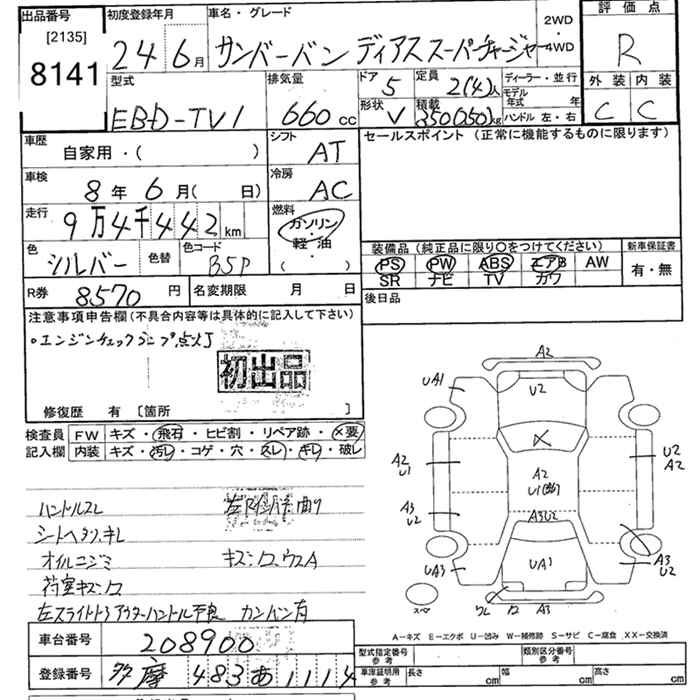 出品番号 初度登録年月 車名・グレード 2WD 評価点
[2135] 24年6月 サンバーバン ディアススーパーチャージャー ・4WD R
8141
型式 排気量 ドア 5 定員 2(4)人 ディーラー・並行 外装 内装
EBD-TV1 660cc 形状 V 積載 350(250)kg モデル年式 年 C C
ハンドル 左・右
車歴 シフト セールスポイント (正常に機能するものに限ります)
自家用・( ) AT
車検 冷房
8年6月( 日) AC
走行 燃料
9万4千442km ガソリン
・軽油
( )
色 シルバー 色替 色コード B5P
装備品 (純正品に限り○をつけてください) 新車保証書
PS PW ABS エアB AW 有・無
SR ナビ TV カワ
R券 8570円 名変期限 月 日 後日品
注意事項申告欄(不具合内容等は具体的に記入して下さい)
○エンジンチェックランプ点灯
初出品
修復歴 有 [箇所 ]
検査員 FW キズ・飛石・ヒビ割・リペア跡・X要
記入欄 内装 キズ・汚レ・コゲ・穴・スレ・キレ・破レ
ハンドルスレ
シートヘタリ、キレ
オイルニジミ
荷室キズ
左スライドドアアウターハンドル不良 カンバン有
A2
UA1 U2
X
A2 U1 A2 U1 U2 A2
A3 U2 A3U2
UA3 UA1 A3 U2
A3
スペア
A-キズ E-エクボ U-凹み W-補修跡 S-サビ C-腐食 XX-交換済
車台番号 208900
登録番号 多摩 483 あ 1114
型式指定番号 参考 類別区分番号 参考
車庫証明用 参考 長さ cm 幅 cm 高さ cm